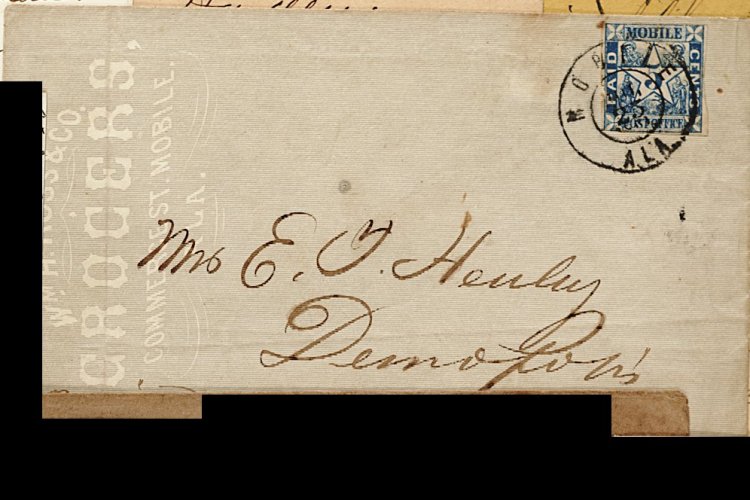 WM H. ROSS & CO.
GROCERS,
COMMERCE ST. MOBILE,
ALA.
MOBILE
PAID
CENTS
POST OFFICE
MOBILE
ALA
23
Mrs E. T. Henley
Demopolis